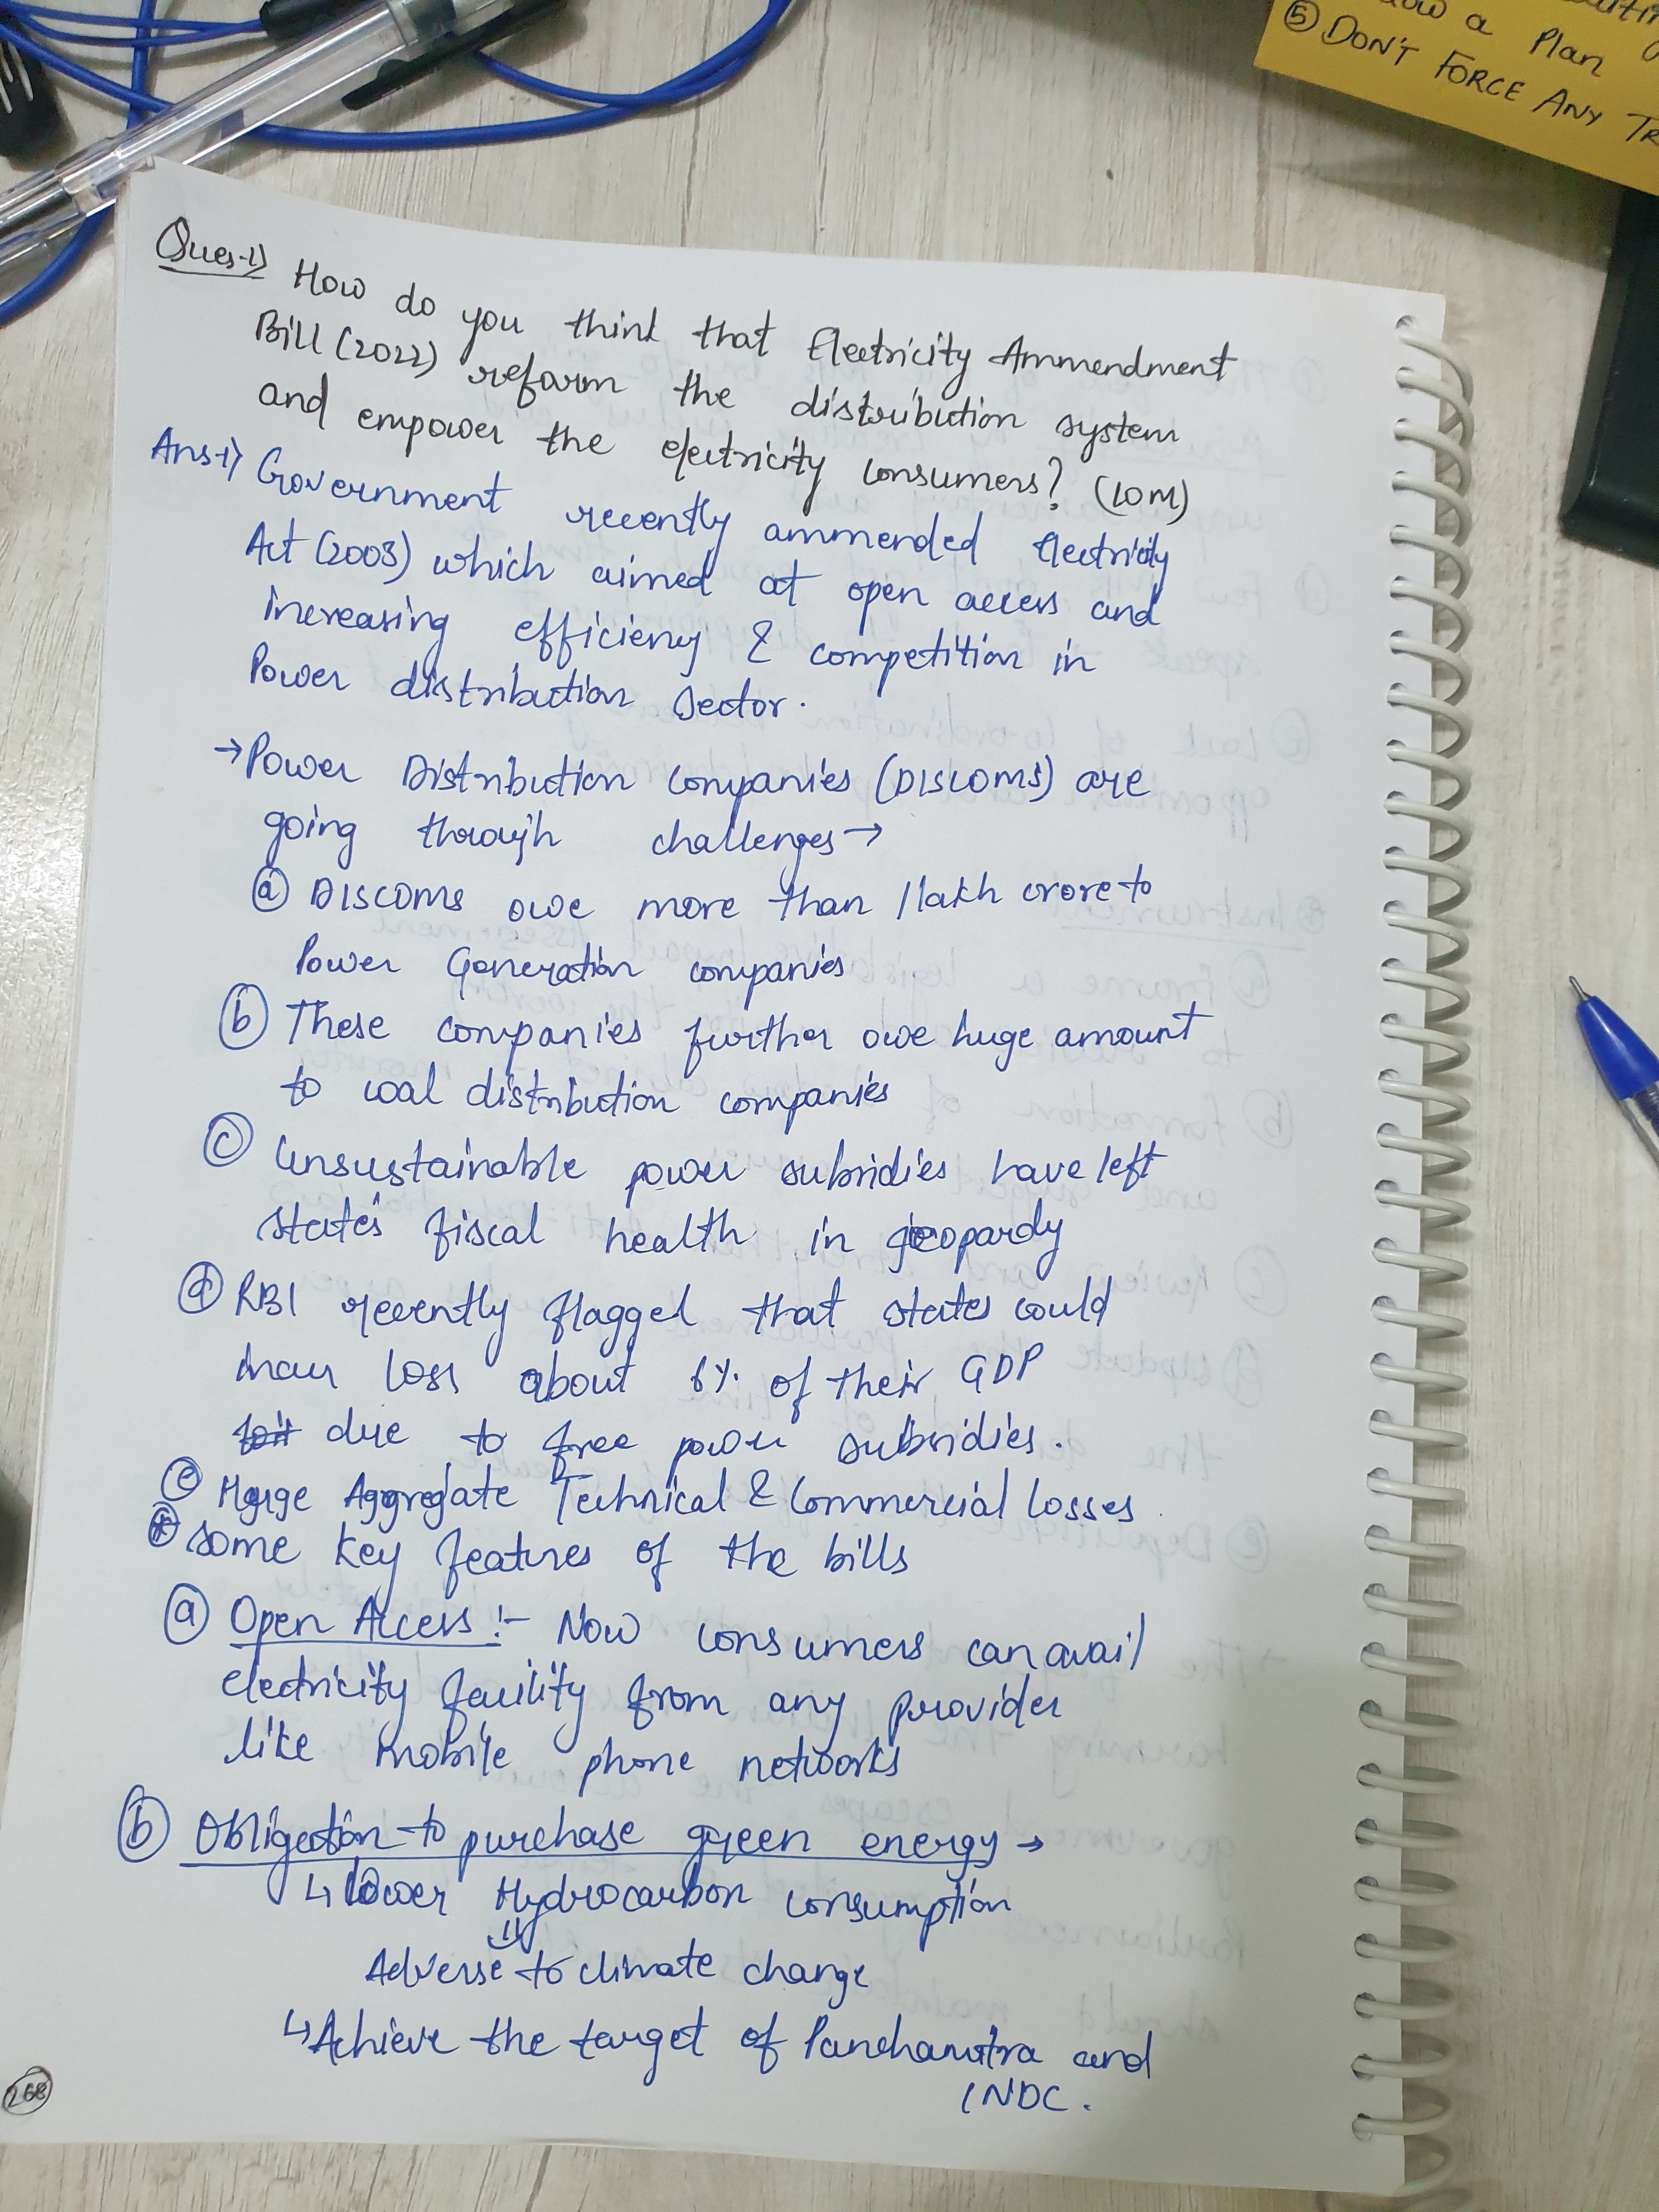 a Plan
⑤ DON'T FORCE ANY TR
Ques-1) How do you think that Electricity Ammendment
Bill (2022) reform the distribution system
and empower the electricity consumers? (10M)
Ans-1) Government recently ammended Electricity
Act (2003) which aimed at open access and
increasing efficieny & competition in
Power distribution sector.
→ Power Distribution Companies (DISCOMS) are
going through challenges →
ⓐ DISCOMS owe more than 1 lakh crore to
Power Generation companies
ⓑ These companies further owe huge amount
to coal distribution companies
ⓒ Unsustainable power subsidies have left
state's fiscal health in jeopardy
ⓓ RBI recently flagged that states could
incur loss about 6% of their GDP
due to free power subsidies.
ⓔ Hugge Aggregate Technical & Commercial losses.
some key features of the bills
ⓐ Open Access :- Now consumers can avail
electricity facility from any provider
like mobile phone networks
ⓑ Obligation to purchase green energy →
↳ lower Hydrocarbon consumption
Adverse to climate change
↳ Achieve the target of Panchamrtra and
INDC.
268